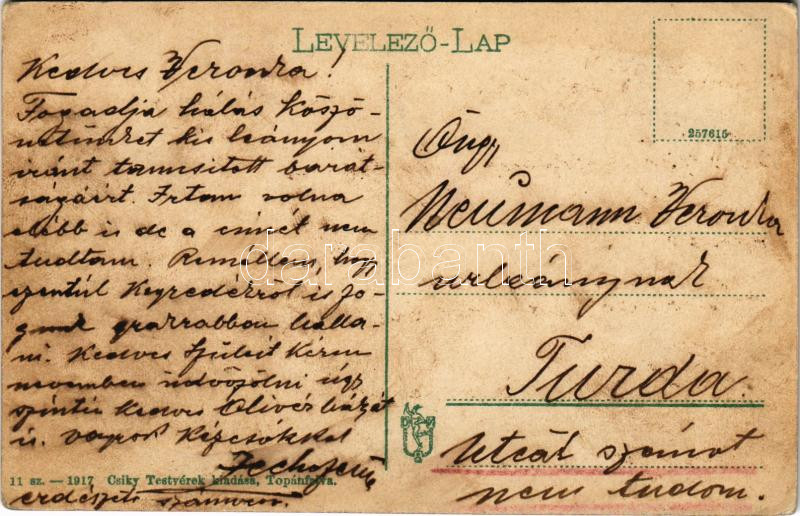 LEVELEZŐ-LAP
Kedves Veronka!
Fogadja hálás köszö-
netünket kis leányom
iránt tanusitott barát-
ságáért. Irtam volna
elébb is de a cimét nem
tudtam. Remélem, hogy
ezentúl Kegyedéktől is fo-
gunk gyakrabban halla-
ni. Kedves Szüleit kérem
nevemben üdvözölni úgy
szintén kedves Olivér bácsit
is. vagyok kézcsókkal
erdészeti számvevő.
11 sz. — 1917 Csiky Testvérek kiadása, Topánfalva.
257615
Neumann Veronka
urleánynak
Turda.
Utcát számot
nem tudom.
darabanth